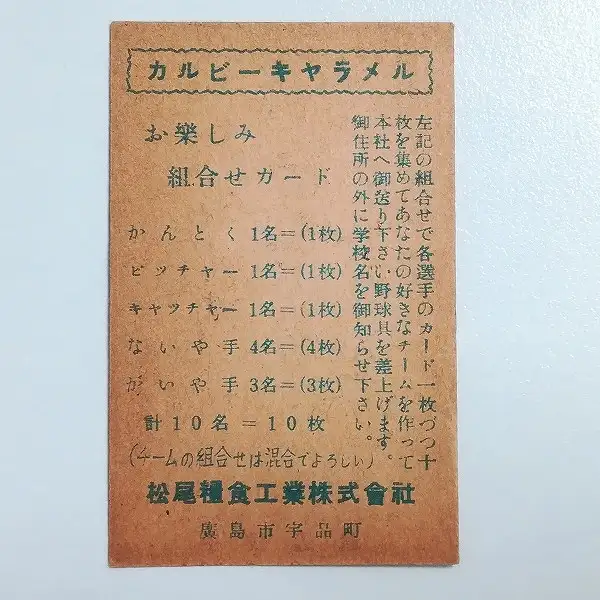 カルビーキャラメル
お樂しみ
組合せカード
左記の組合せで各選手のカード一枚づつ十
枚を集めてあなたの好きなチームを作って
本社へ御送り下さい野球具を差上げます。
御住所の外に学校名を御知らせ下さい。
かんとく 1名=(1枚)
ピッチャー 1名=(1枚)
キャッチャー 1名=(1枚)
ないや手 4名=(4枚)
がいや手 3名=(3枚)
計10名=10枚
(チームの組合せは混合でよろしい)
松尾糧食工業株式會社
廣島市宇品町